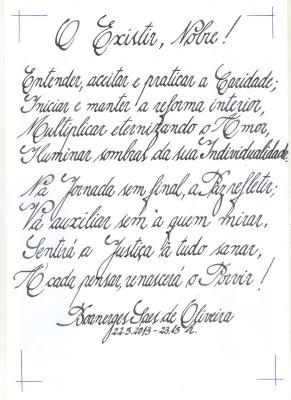 O Existir, Nobre!
Entender, aceitar e praticar a Caridade;
Iniciar e manter a reforma interior,
Multiplicar eternizando o Amor,
Iluminar sombras da sua Individualidade.
Na Jornada sem final, a Paz refletir;
Vá auxiliar sem a quem mirar,
Sentirá a Justiça à tudo sanar,
A cada pensar, renascerá o Porvir!
Boanerges Saes de Oliveira
22.5.2013 - 23.15 h.